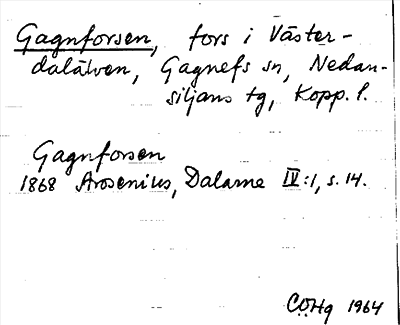 Gagnforsen, fors i Väster-
dalälven, Gagnefs sn, Nedan-
siljans tg, Kopp. l.
Gagnforsen
1868 Arosenius, Dalarne IV:1, s. 14.
CÖHg 1964